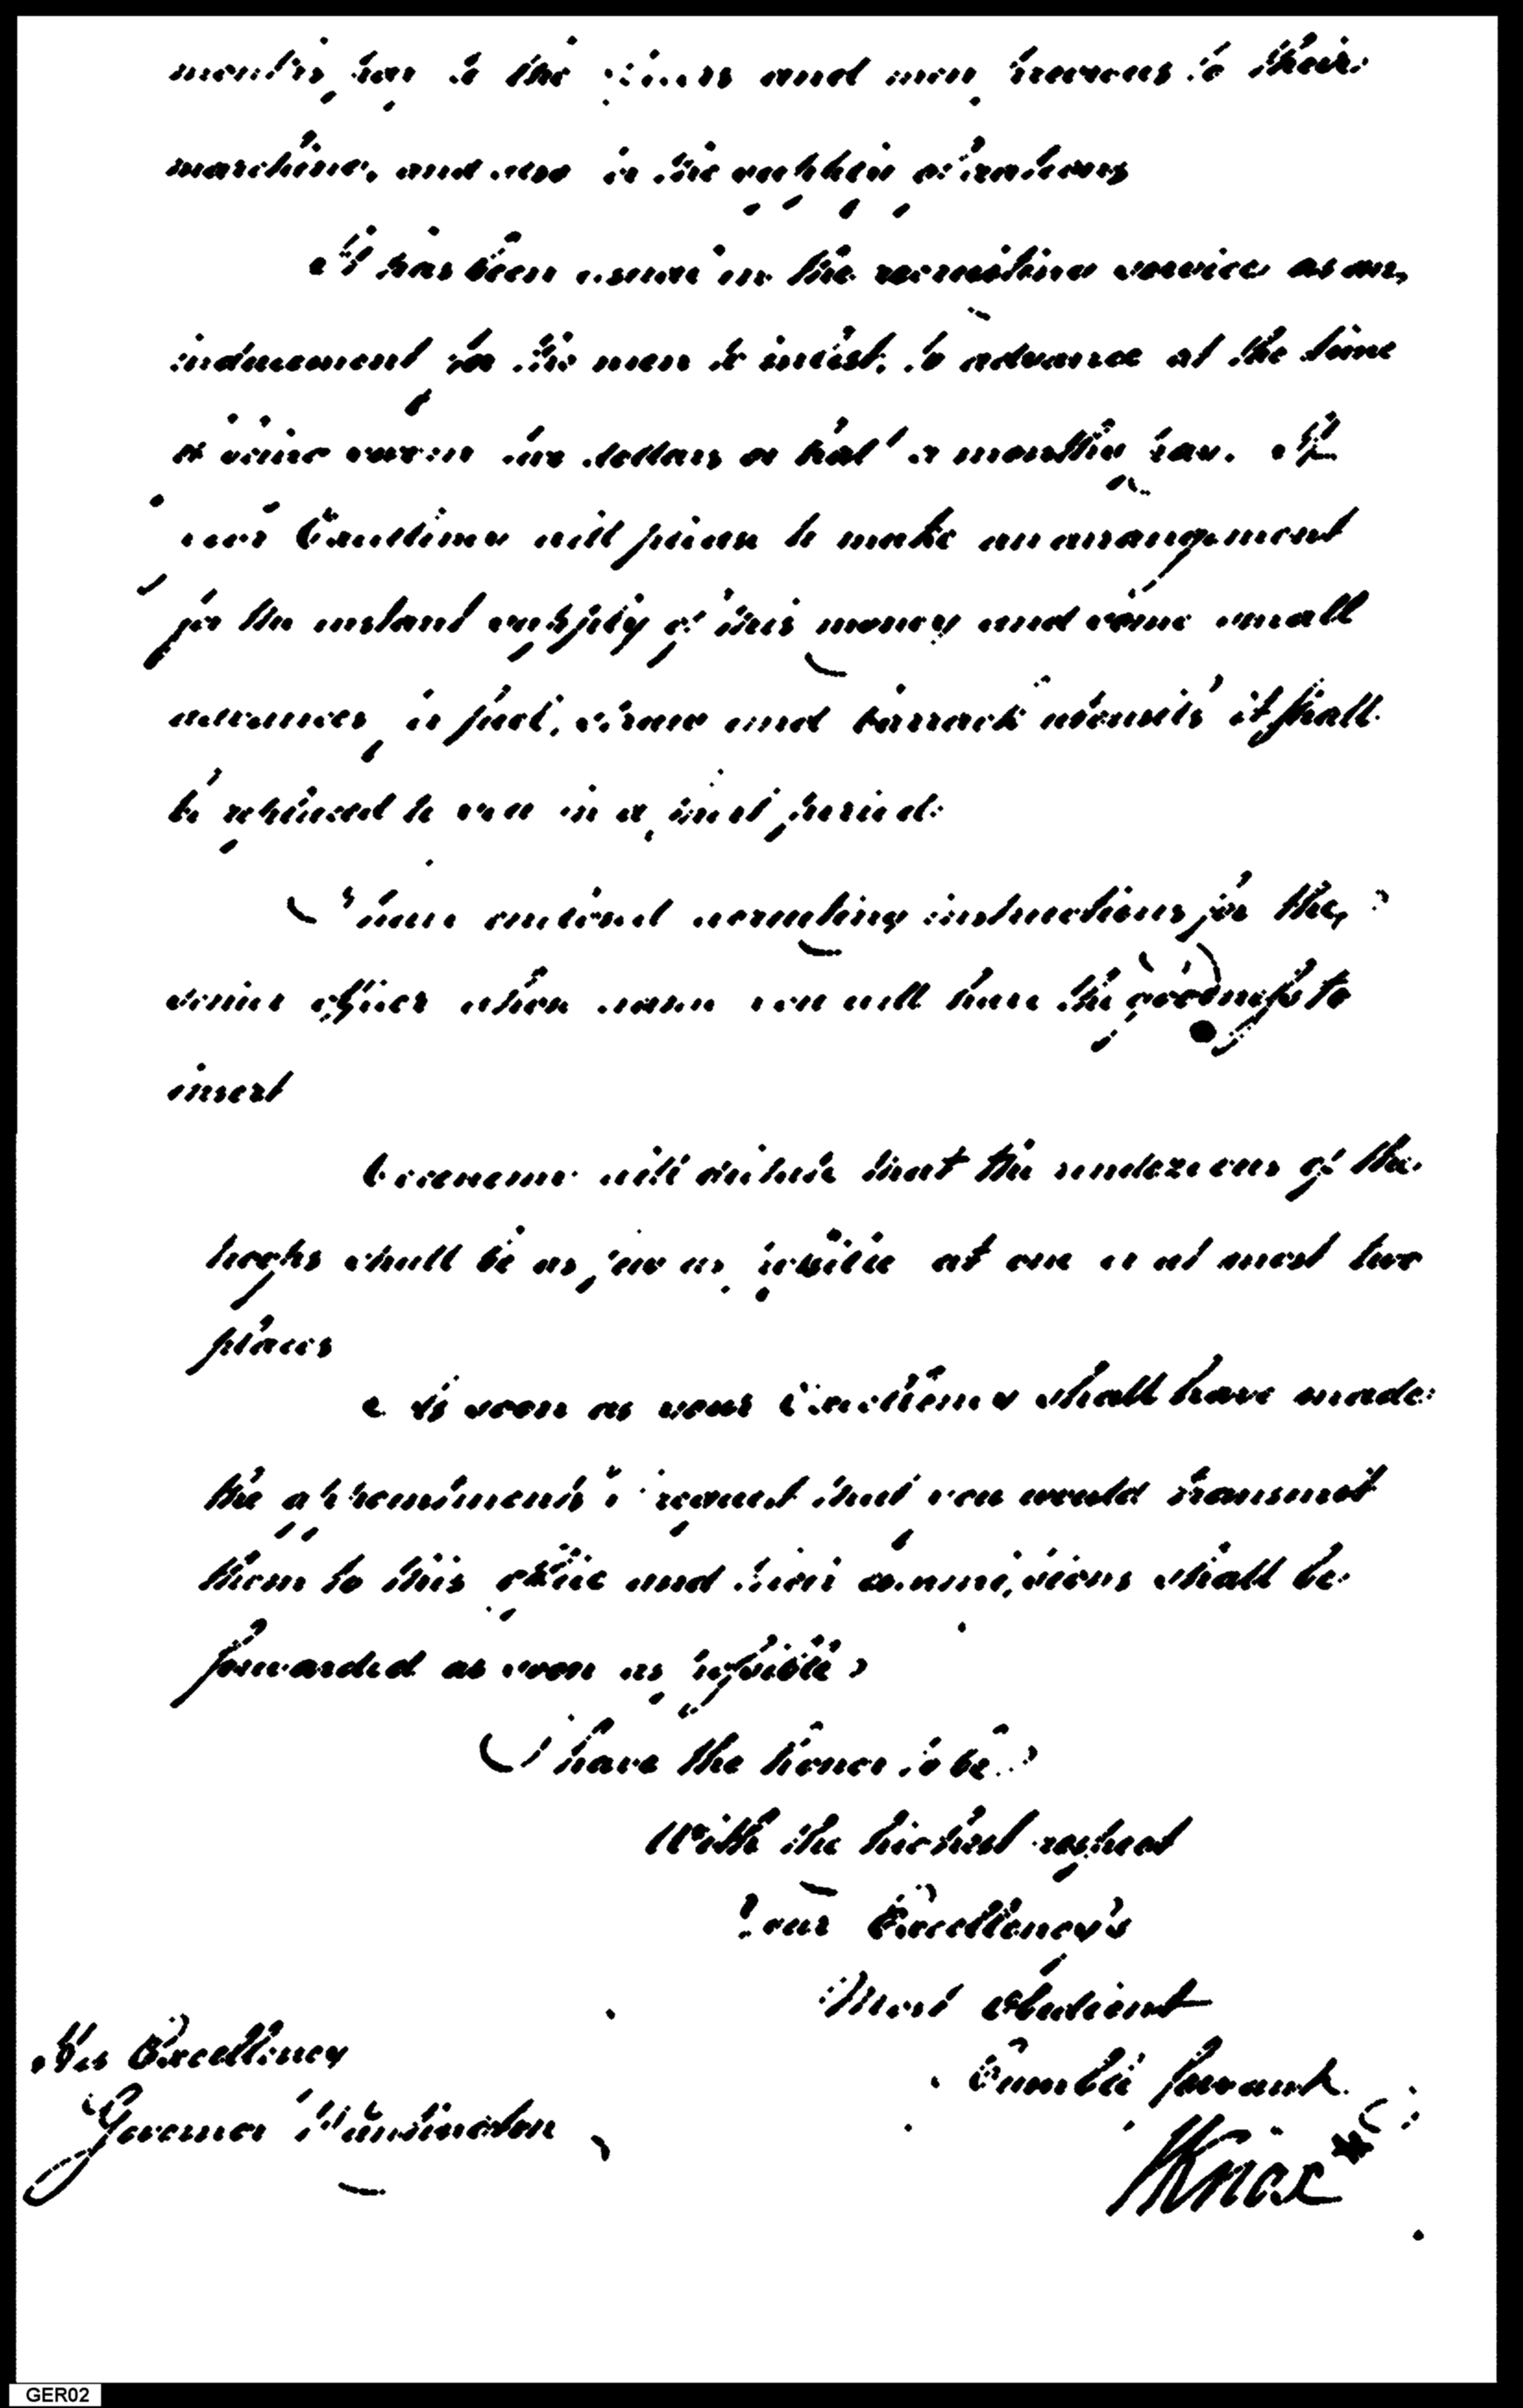 months pay to the officers and men previous to their
marching, and also in the supplies of rations
It has been usual in the recruiting service as an
inducement for the men to inlist, to advance at the time
of being sworn five dollars or half a months pay. If
your Excellency will please to make an arrangement
for the instant supply of this money and some small
advances, in fuel, straw and barrack utensils it shall
be refunded to you in a short period.
I have enclosed recruiting instructions for the
senior officer whose name you will have the goodness to
insert
Œconomy will dictate that the rendezvous of the
troops shall be as few as possible at one or at most two
places
As soon as your Excellency shall have made
the appointments I request that you would transmit
them to this office and their commissions shall be
forwarded as soon as possible
I have the honor to be
With the highest respect
Your Excellency's
Most obedient
humble Servant
HKnox
His Excellency
Governor Huntington
GER02